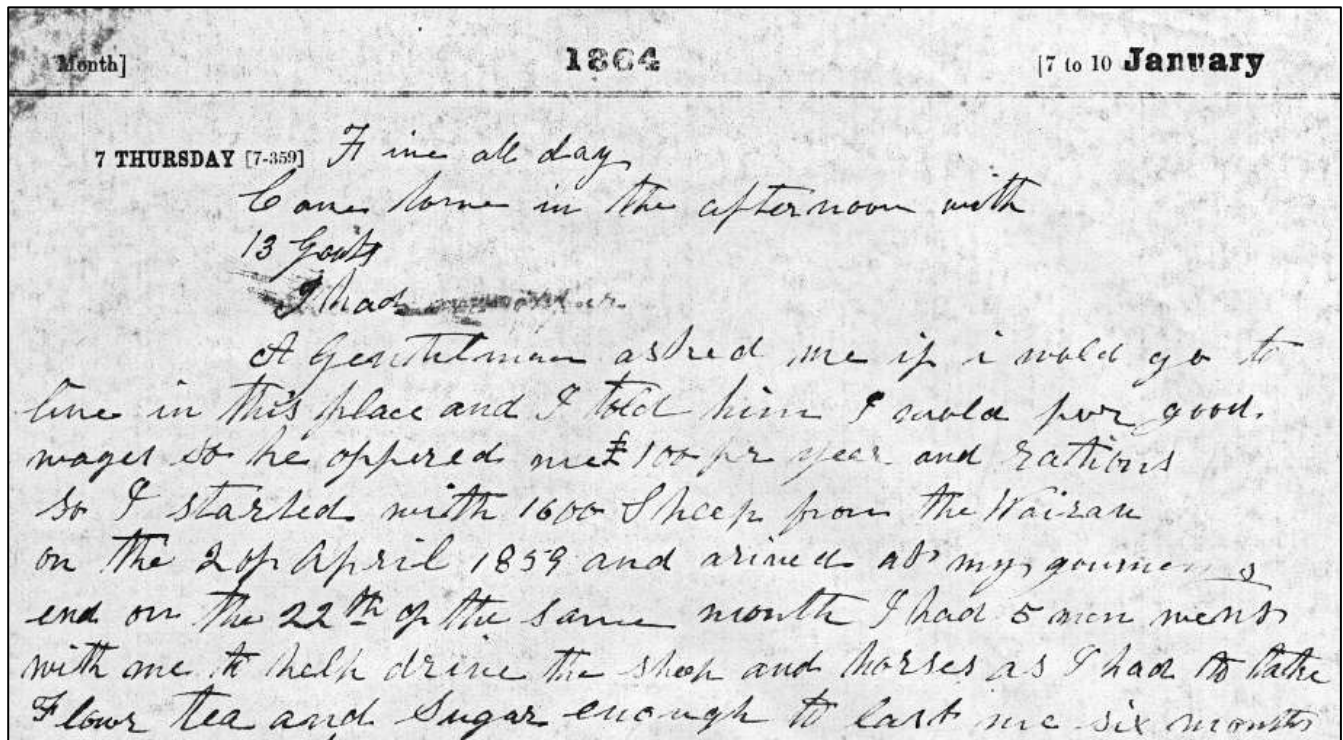 Month] 1864 [7 to 10 January
7 THURSDAY [7-359] Fine all day
Came home in the afternoon with
13 Goats
I had
A Gentelman asked me if i wold go to
live in this place and I told him I would for good
wages so he offered me £100 pr year and rations
so I started with 1600 Sheep from the Wairau
on the 2 of April 1859 and arived at my gourneys
end on the 22th of the same month I had 5 men went
with me to help drive the sheep and horses as I had to take
Flour tea and Sugar enough to last me six months